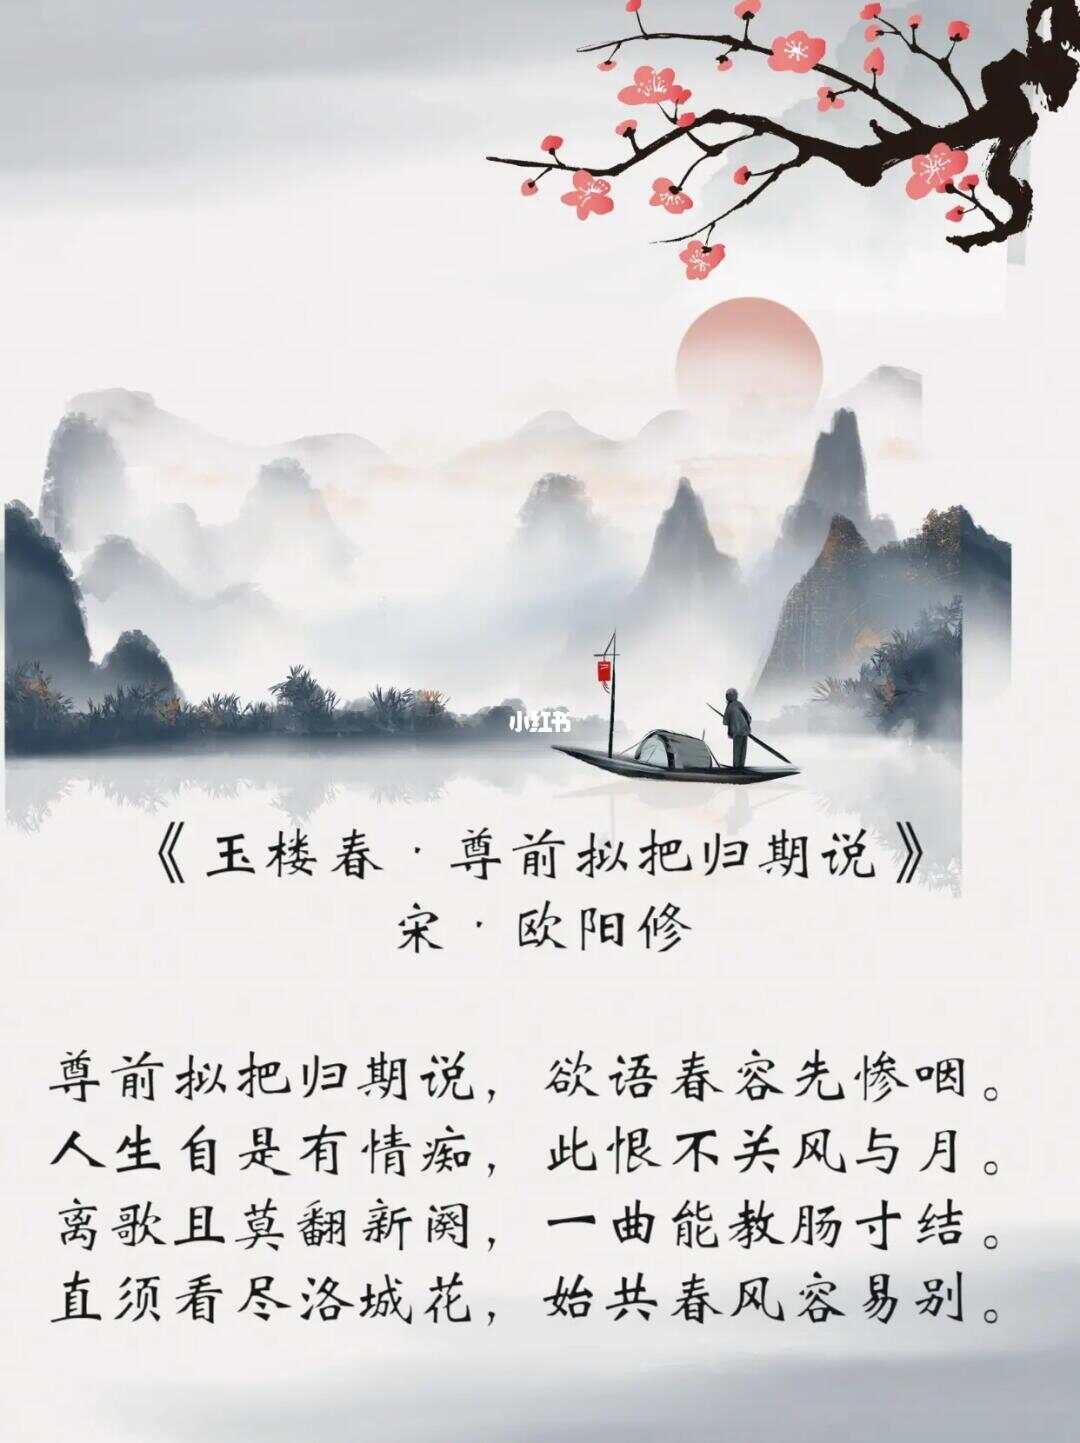 小红书
《玉楼春·尊前拟把归期说》
宋·欧阳修
尊前拟把归期说，欲语春容先惨咽。
人生自是有情痴，此恨不关风与月。
离歌且莫翻新阕，一曲能教肠寸结。
直须看尽洛城花，始共春风容易别。